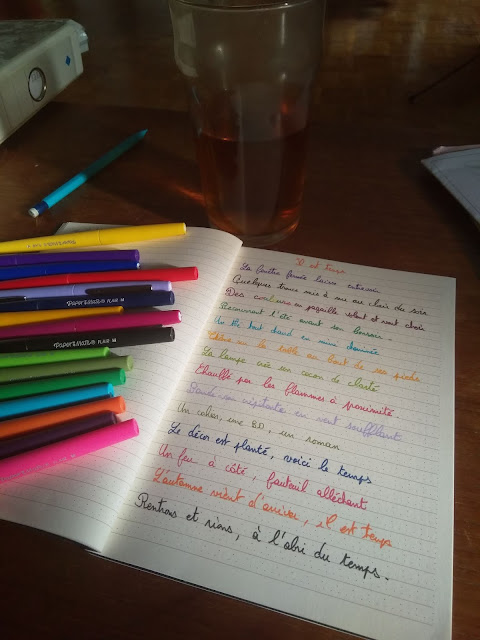 Il est temps
La fenêtre fermée laisse entrevoir
Quelques troncs mis à nu au clair du soir
Des couleurs en pagaille volent et vont choir
Recouvrant l'été avant son bonsoir.
Un thé tout chaud en mini cheminée
sur la table au bout de
La lampe crée son cocon de clarté
Chauffé par les flammes à proximité.
crépitante en vent soufflant
Un cahier, une B.D, un roman
Le décor est planté, voici le temps
Un feu à côté, fauteuil alléchant
L'automne vient d'arriver, il est temps
Rentrons et rions, à l'abri du temps.
PAPER:MATE FLAIR M
PAPER:MATE FLAIR M